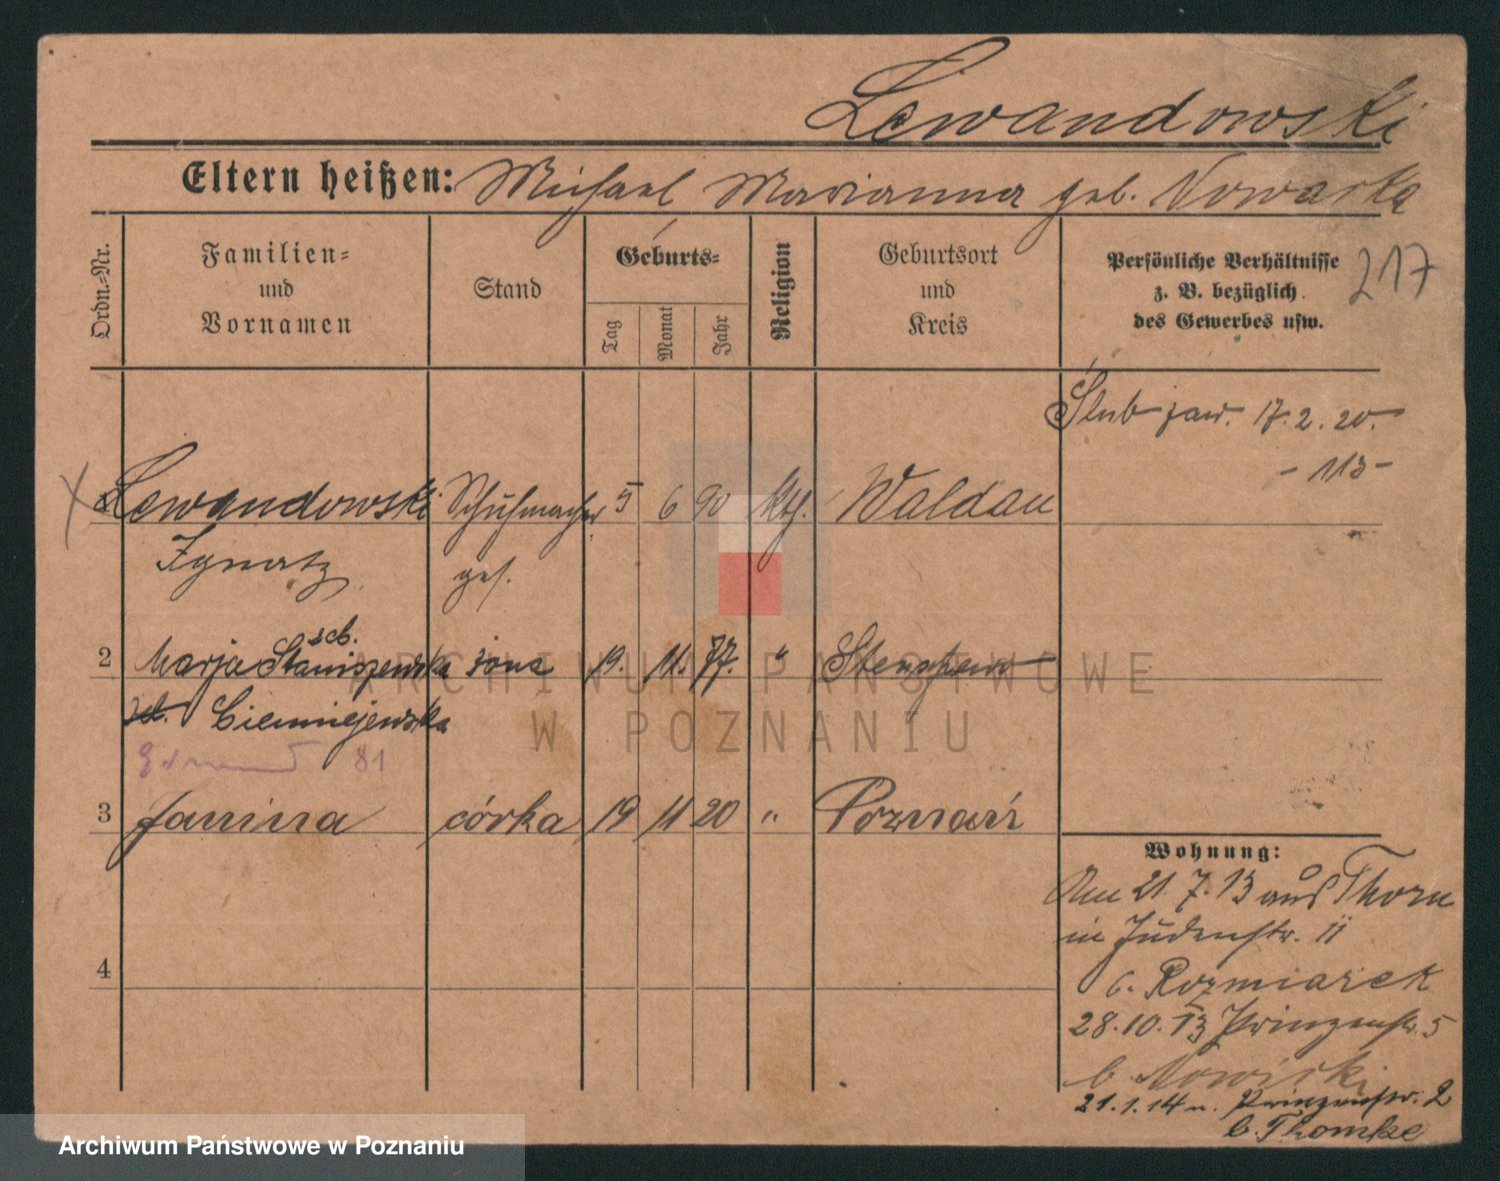 Lewandowski
Eltern heißen: Michael Marianna geb. Nowacka
Ordn.-Nr.
Familien- und Vornamen
Stand
Geburts-
Tag
Monat
Jahr
Religion
Geburtsort und Kreis
Persönliche Verhältnisse z. B. bezüglich des Gewerbes usw.
217
Ślub zaw. 17.2.20.
- 113 -
X Lewandowski Schuhmacher 5 6 90 kth. Waldau
Ignatz ges.
scb.
2 Marja Staniszewska żona 19. 11. 77. " Stenschewo
Ciemniejewska
81
3 Janina córka 19 11 20 " Poznań
4
Wohnung:
Am 21.7.13 aus Thorn
in Judenstr. 11
b. Rozmiarek
28.10.13 Prinzenstr. 5
b. Nowicki
21.1.14 n. Prinzenstr. 2
b. Thomke
ARCHIWUM PAŃSTWOWE
W POZNANIU
Archiwum Państwowe w Poznaniu